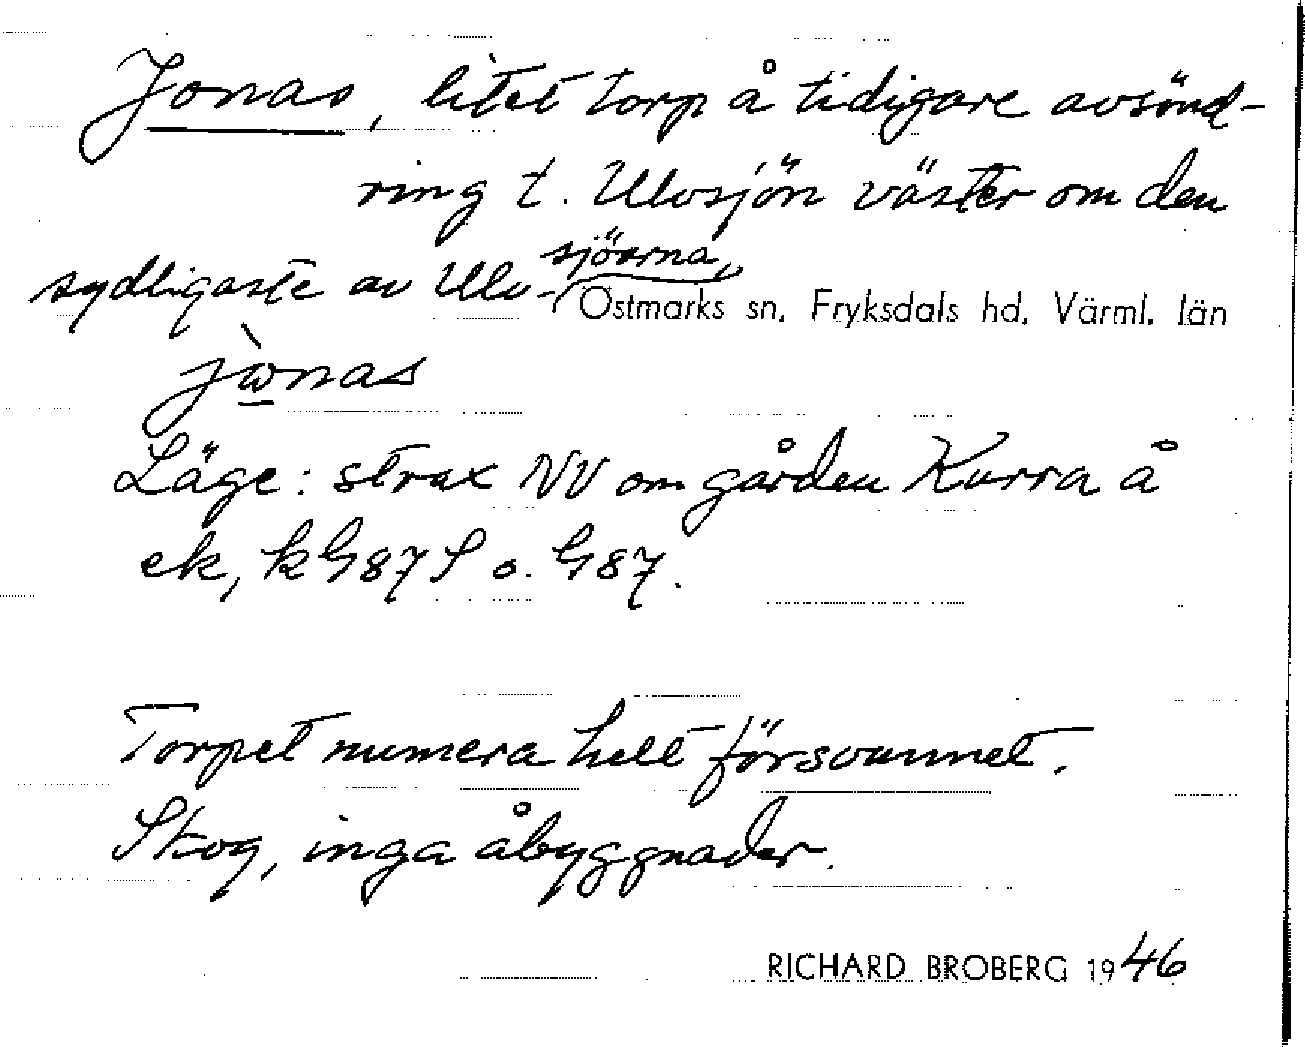 Jonas, litet torp å tidigare avsönd-
ring t. Ulvsjön väster om den
sydligaste av Ulv-sjöarna,
Östmarks sn. Fryksdals hd. Värml. län
jὼnas
Läge: strax NV om gården Kurra å
ek, k G87S o. G87.
Torpet numera helt försvunnet.
Skog, inga åbyggnader.
RICHARD BROBERG 1946